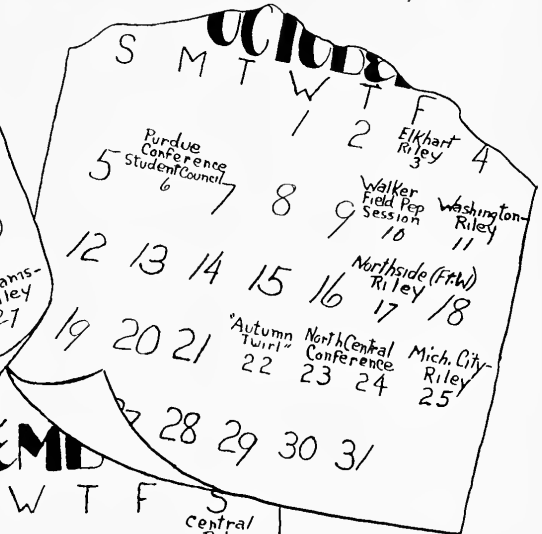 OCTOBER
S M T W T F
1 2 Elkhart
Riley
3 4
5 Purdue
Conference
Student Council
6 7 8 9 Walker
Field Pep
Session
10 Washington-
Riley
11
12 13 14 15 16 Northside (Ft.W)
Riley
17 18
19 20 21 "Autumn
Twirl"
22 North Central
Conference
23 24 Mich. City-
Riley
25
27 28 29 30 31
ams-
ley
27
EMB
W T F S
Central